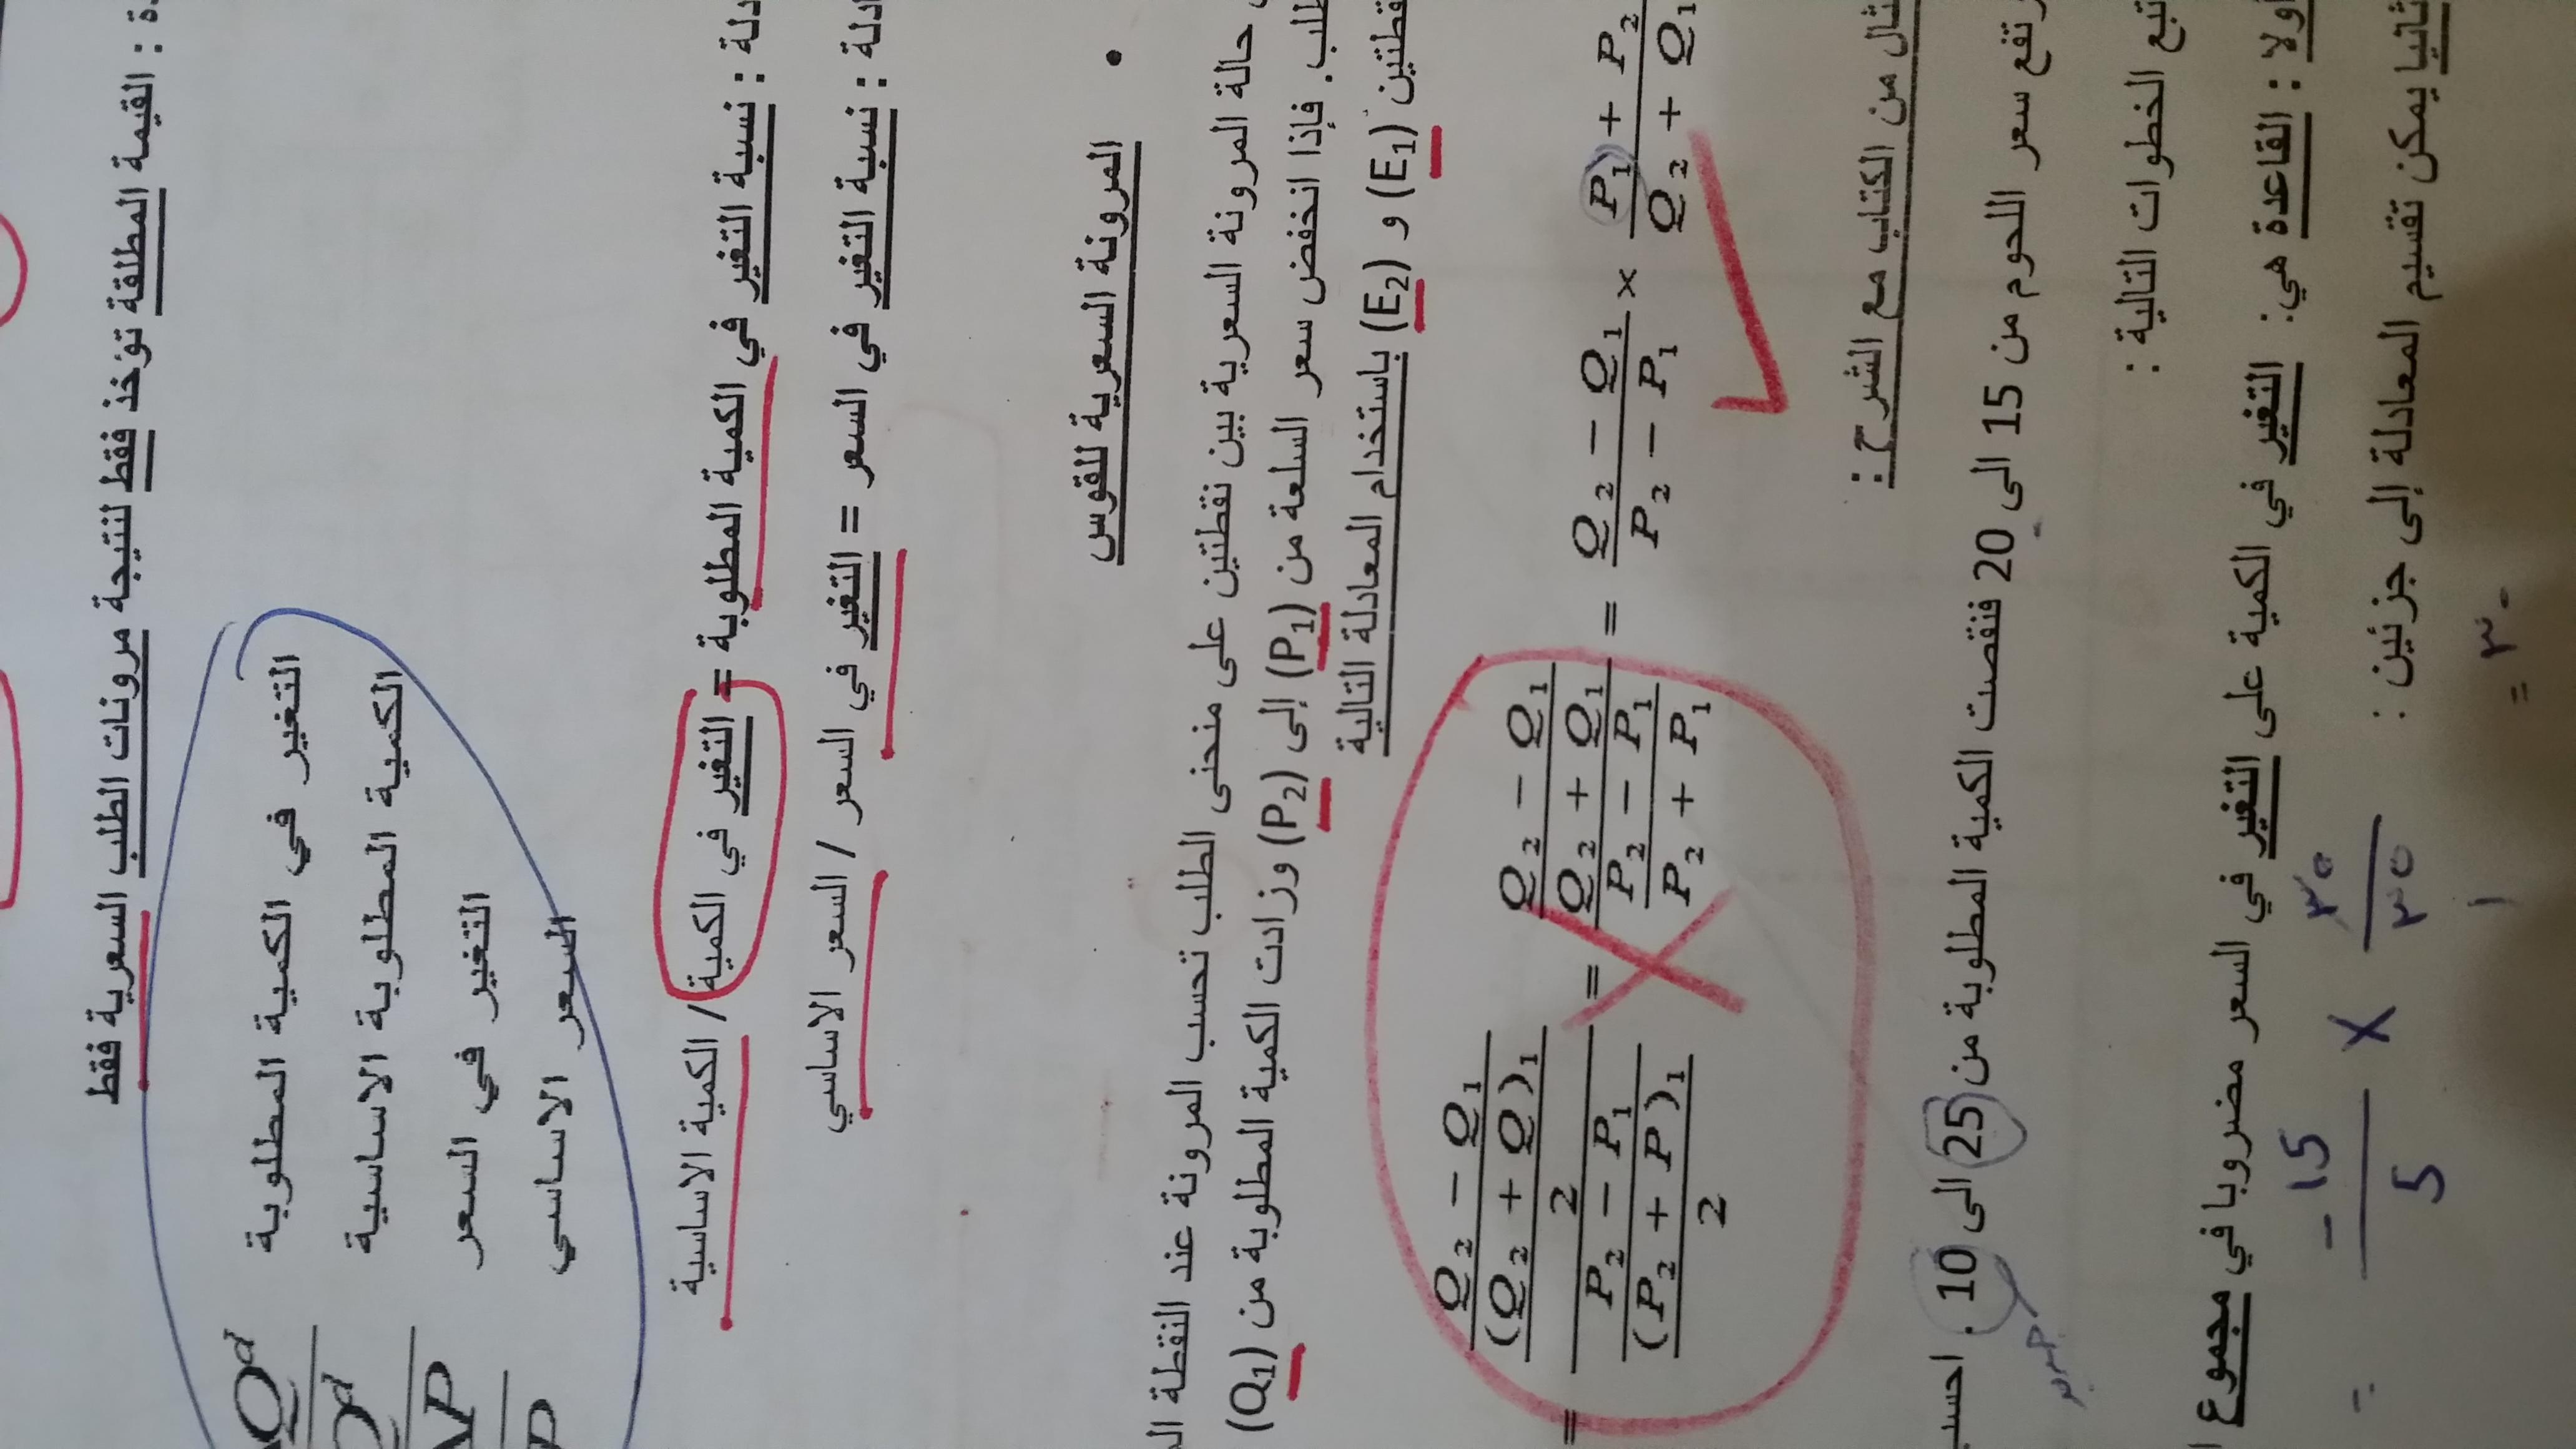 : القيمة المطلقة تؤخذ فقط لنتيجة مرونات الطلب السعرية فقط
التغير في الكمية المطلوبة
الكمية المطلوبة الاساسية
التغير في السعر
السعر الاساسي
Qd
P
: نسبة التغير في الكمية المطلوبة = التغير في الكمية / الكمية الاساسية
: نسبة التغير في السعر = التغير في السعر / السعر الاساسي
• المرونة السعرية للقوس
حالة المرونة السعرية بين نقطتين على منحنى الطلب تحسب المرونة عند النقطة
فإذا انخفض سعر السلعة من (P1) إلى (P2) وزادت الكمية المطلوبة من (Q1)
(E1) و (E2) باستخدام المعادلة التالية
= Q2 − Q1 / (Q2 + Q)1 / 2 / P2 − P1 / (P2 + P)1 / 2 = Q2 − Q1 / Q2 + Q1 / P2 − P1 / P2 + P1 = Q2 − Q1 / P2 − P1 × P1 + P2 / Q2 + Q1
من الكتاب مع الشرح :
سعر اللحوم من 15 الى 20 فنقصت الكمية المطلوبة من 25 الى 10 . احسب
الخطوات التالية :
اولا : القاعدة هي: التغير في الكمية على التغير في السعر مضروبا في مجموع
ثانيا يمكن تقسيم المعادلة إلى جزئين :
= −15 / 5 × ٣٥ / ٣٥
= ٣-